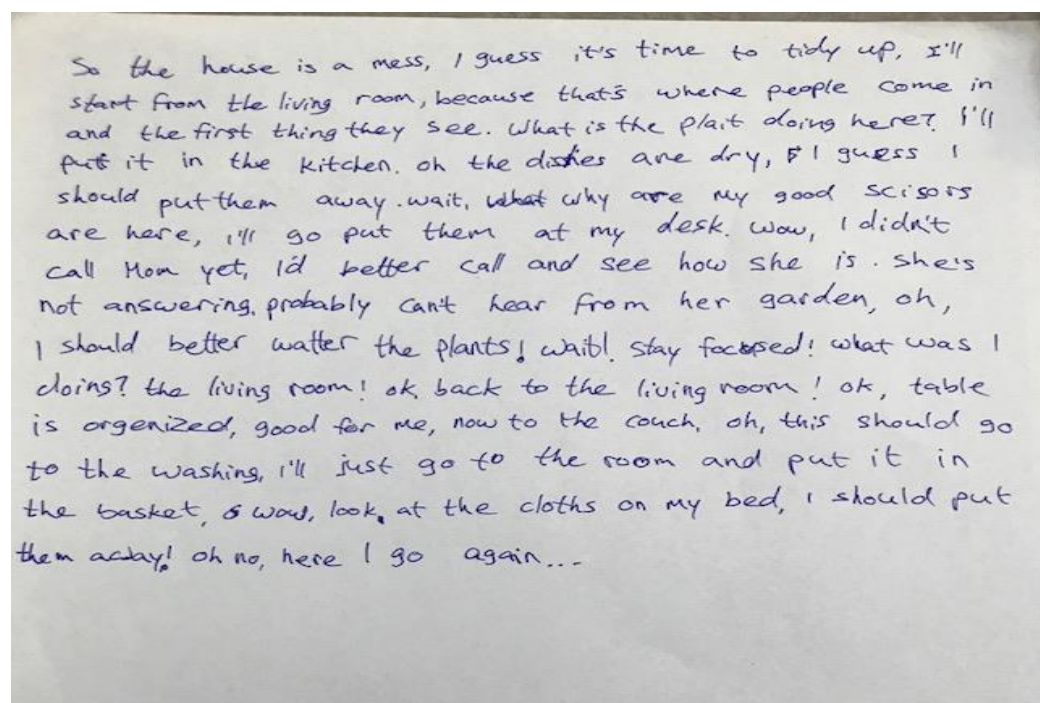 So the house is a mess, I guess it's time to tidy up, I'll
start from the living room, because that's where people come in
and the first thing they see. What is the plait doing here? I'll
put it in the kitchen. oh the dishes are dry, I guess I
should put them away. wait, what why are my good scisors
are here, I'll go put them at my desk. wow, I didn't
call Mom yet, I'd better call and see how she is. she's
not answering, probably can't hear from her garden, oh,
I should better watter the plants! wait! stay focused! what was I
doing? the living room! ok, back to the living room! ok, table
is orgenized, good for me, now to the couch. oh, this should go
to the washing, I'll just go to the room and put it in
the basket, wow, look, at the cloths on my bed, I should put
them away! oh no, here I go again...